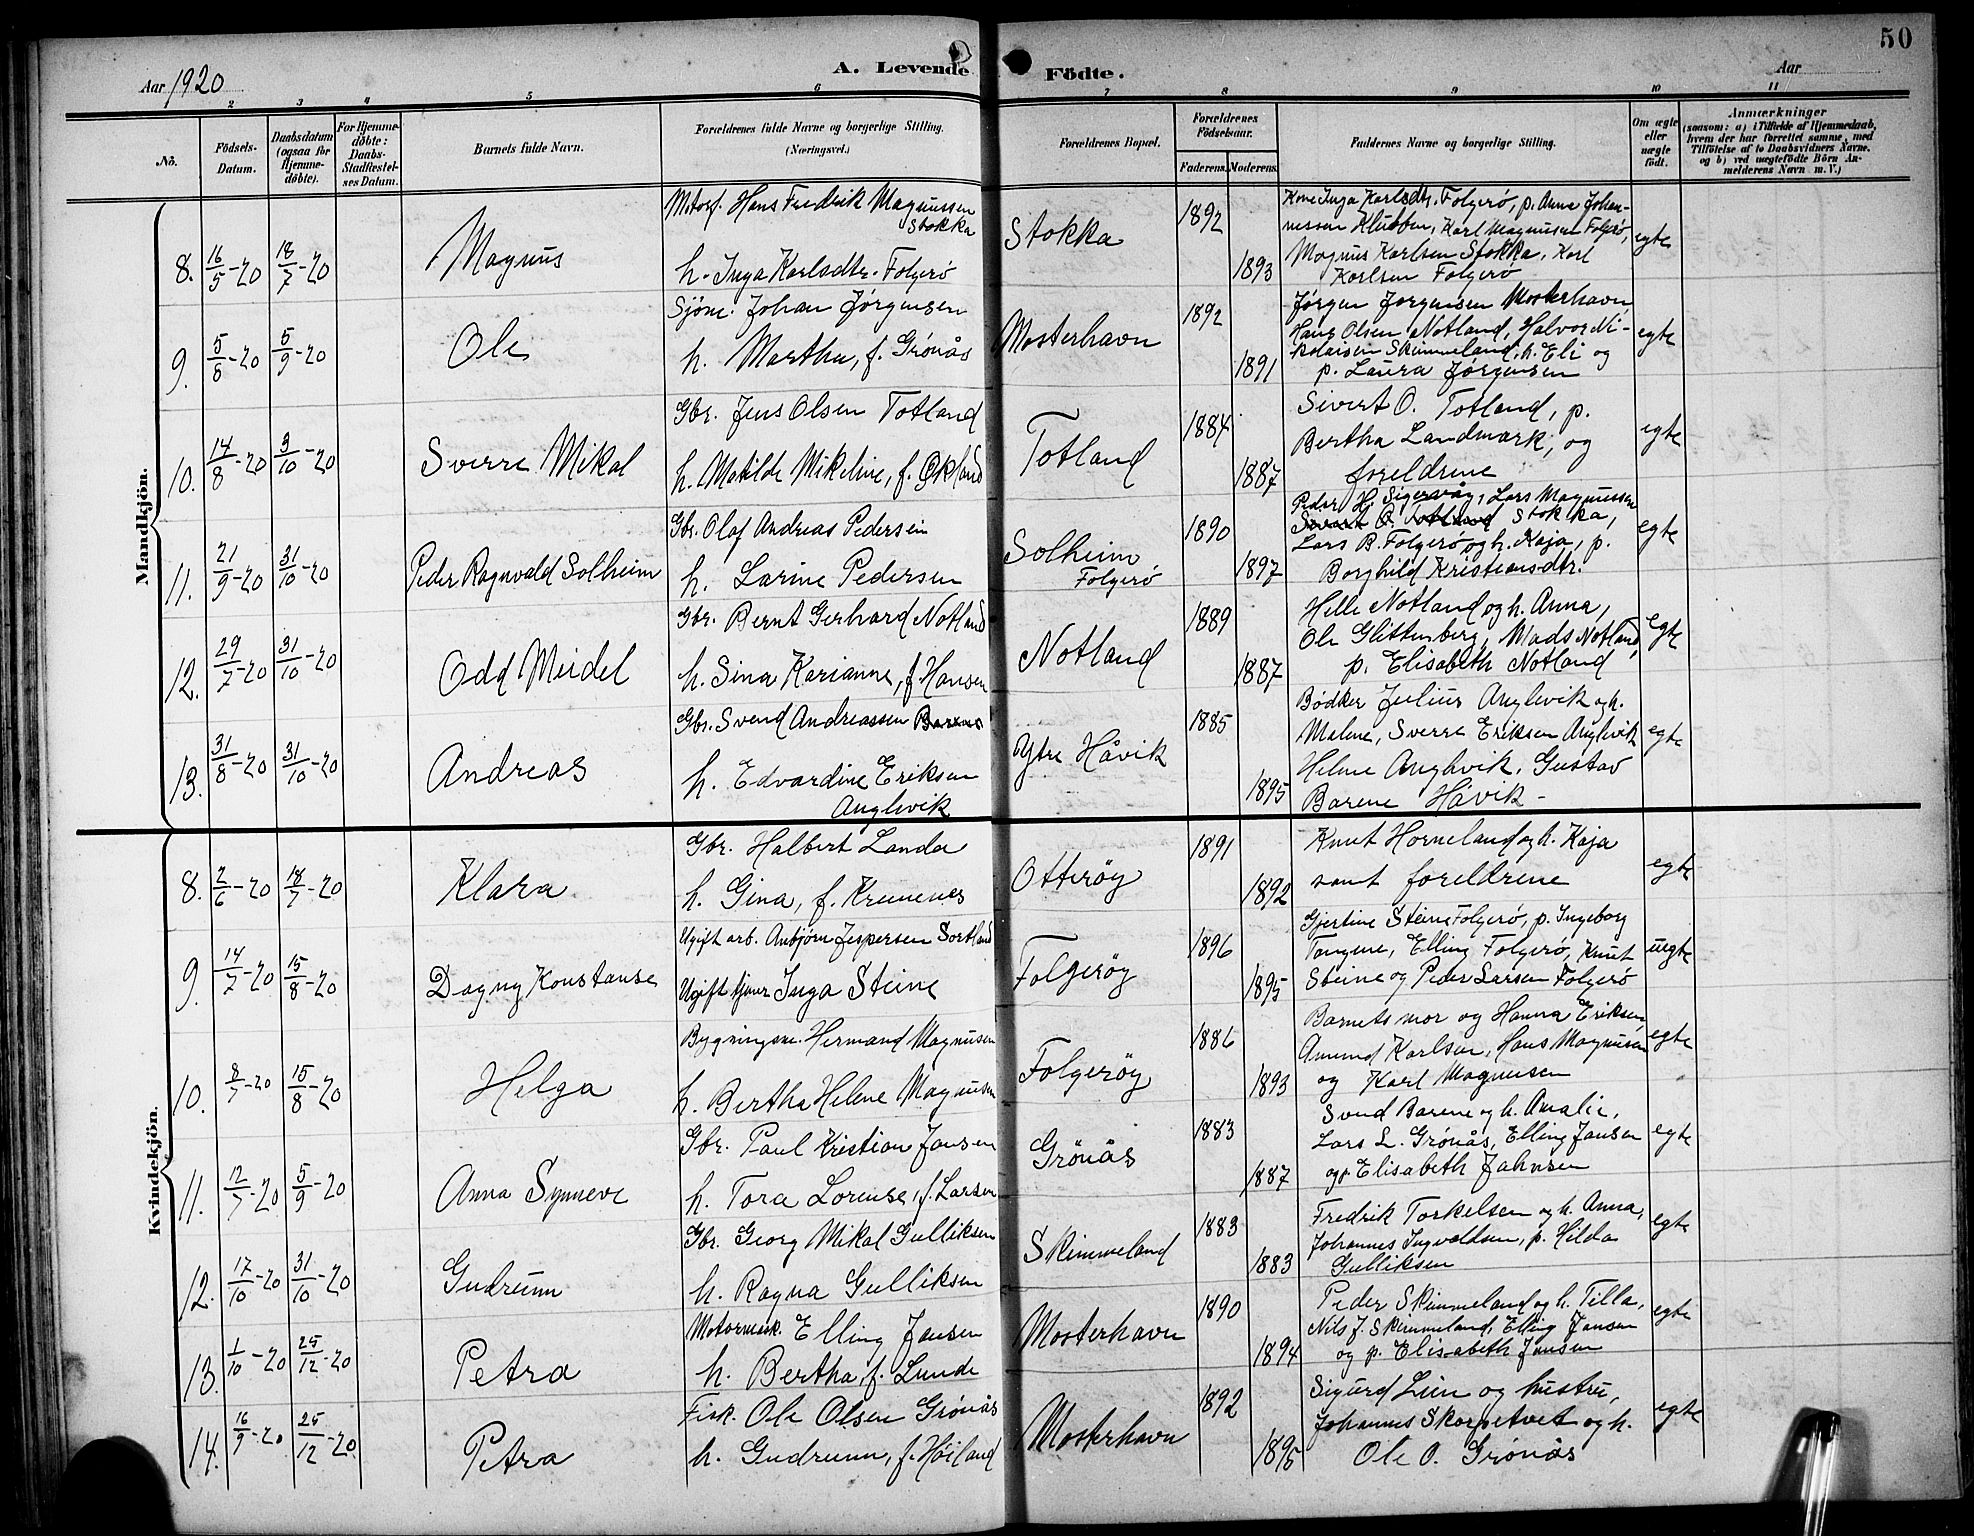 50
Aar 1920
A. Levende Födte.
Aar
1 2 3 4 5 6 7 8 9 10 11
Nô.
Födsels-Datum.
Daabsdatum (ogsaa for Hjemmedöbte).
For Hjemmedöbte: Daabs-Stadfæstelses Datum.
Barnets fulde Navn.
Forældrenes fulde Navne og borgerlige Stilling. (Næringsvei.)
Forældrenes Bopæl.
Forældrenes Födselsaar.
Faderens. Moderens.
Faddernes Navne og borgerlige Stilling.
Om ægte eller uægte født.
Anmærkninger
(saasom: a) i Tilfælde af Hjemmedaab, hvem der har forrettet samme, med Tilföielse af to Daabsvidners Navne. og b) ved uægtefödte Börn Anmelderens Navn m. V.)
Mandkjön.
8. 16/5-20 18/7-20 Magnus
Motorf. Hans Fredrik Magnussen Stokka
h. Inga Karlsdtr. Folgerö
Stokka 1892 1893
Kone Inga Karlsdtr. Folgerö, p. Anna Johan-
nessen Klubben, Karl Magnussen Folgerö,
Magnus Karlsen Stokka, Karl
Karlsen Folgerö
egte
9. 5/8-20 5/9-20 Ole
Sjöm. Johan Jørgensen
h. Martha, f. Grönås
Mosterhavn 1892 1891
Jørgen Jørgensen Mosterhavn,
Haug Olsen Notland, Halvor Ni-
kolaisen Skimmeland, h. Eli og
p. Laura Jørgensen
egte
10. 14/8-20 3/10-20 Sverre Mikal
Gbr. Jens Olsen Totland
h. Matilde Mikeline, f. Økland
Totland 1884 1887
Sivert O. Totland, p.
Bertha Landmark, og
foreldrene
egte
11. 21/9-20 31/10-20 Peder Ragnvald Solheim
Gbr. Olaf Andreas Pedersen
h. Larine Pedersen
Solheim Folgerö 1890 1897
Peder H. Siggervåg, Lars Magnussen
Sivert O. Totland Stokka,
Lars B. Folgerö og h. Kaja, p.
Borghild Kristiansdtr.
egte
12. 29/7-20 31/10-20 Odd Meidel
Gbr. Bernt Gerhard Notland
h. Sina Karianne, f. Hansen
Notland 1889 1887
Helle Notland og h. Anna,
Ole Glittenberg, Mads Notland,
p. Elisabeth Notland
egte
13. 31/8-20 31/10-20 Andreas
Gbr. Svend Andreassen Barene
h. Edvardine Eriksen
Anglevik
Ytre Håvik 1885 1895
Bødker Julius Anglevik og h.
Malene, Sverre Eriksen Anglevik
Helene Anglevik, Gustav
Barene Håvik -
egte
Kvindekjön.
8. 2/6-20 18/7-20 Klara
Gbr. Halbert Landa
h. Gina, f. Kremenes
Otteröy 1891 1892
Knut Horneland og h. Kaja
samt foreldrene
egte
9. 14/7-20 15/8-20 Dagny Konstanse
Ugift arb. Anbjørn Jespersen Sortland
Ugift tjener Inga Steine
Folgeröy 1896 1895
Gjertine Steine Folgerö, p. Ingeborg
Tangene, Elling Folgerö, Knut
Steine og Peder Larsen Folgerö
uegte
10. 8/7-20 15/8-20 Helga
Bygningsm. Hermand Magnusen
h. Bertha Helene Magnusen
Folgeröy 1886 1893
Barnets mor og Hanna Eriksen,
Amund Karlsen, Hans Magnusen
og Karl Magnusen
egte
11. 12/7-20 5/9-20 Anna Synneve
Gbr. Paul Kristian Jansen
h. Tora Lorense, f. Larsen
Grönås 1883 1887
Svend Barene og h. Amalie,
Lars L. Grönås, Elling Jansen
og p. Elisabeth Jahnsen
egte
12. 17/10-20 31/10-20 Gudrunn
Gbr. Georg Mikal Gulliksen
h. Ragna Gulliksen
Skimmeland 1883 1883
Fredrik Torkelsen og h. Anna,
Johannes Ingvaldsen, p. Hilda
Gulliksen
egte
13. 1/10-20 25/12-20 Petra
Motormask. Elling Jansen
h. Bertha, f. Lunde
Mosterhavn 1890 1894
Peder Skimmeland og h. Tilla,
Nils J. Skimmeland, Elling Jansen
og p. Elisabeth Jansen
egte
14. 16/9-20 25/12-20. Petra
Fisk. Ole Olsen Grönås
h. Gudrunn, f. Höiland
Mosterhavn 1892 1895
Sigurd Lien og hustru,
Johannes Skorpetvet og h.
Ole O. Grönås
egte